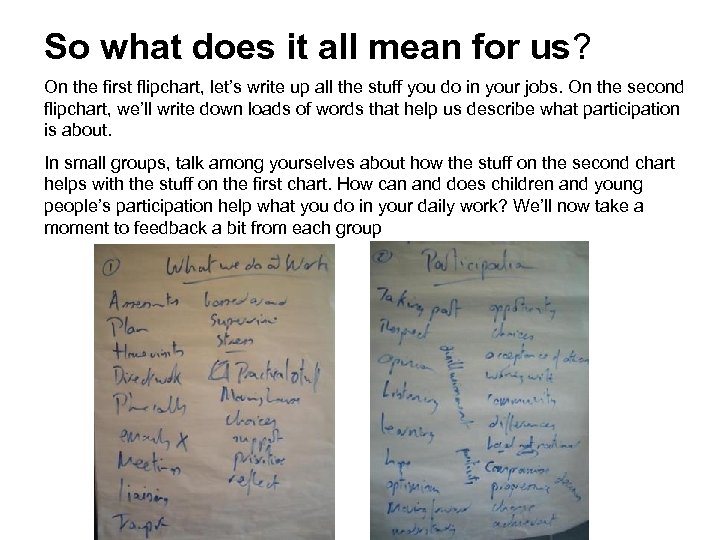 So what does it all mean for us?
On the first flipchart, let's write up all the stuff you do in your jobs. On the second
flipchart, we'll write down loads of words that help us describe what participation
is about.
In small groups, talk among yourselves about how the stuff on the second chart
helps with the stuff on the first chart. How can and does children and young
people's participation help what you do in your daily work? We'll now take a
moment to feedback a bit from each group
1 What we do at Work
Plan
Home visits
Direct work
Phonecalls
emails X
Meetings
Liaising
Supervision
Stress
Moving house
choices
support
prioritise
reflect
2 Participation
Taking part
Respect
Opinion
Listening
Learning
hope
optimism
Moving forward
understanding
opportunity
choices
acceptance of others
working with
community
differences
Local not national
Compromise
change
achievement